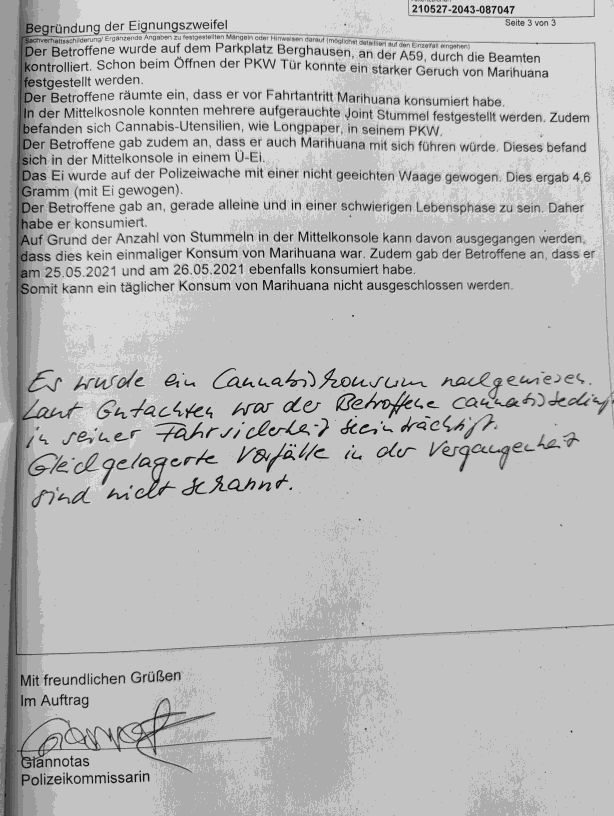 210527-2043-087047
Begründung der Eignungszweifel
Seite 3 von 3
Sachverhaltsschilderung/ Ergänzende Angaben zu festgestellten Mängeln oder Hinweisen darauf (möglichst detailliert auf den Einzelfall eingehen)
Der Betroffene wurde auf dem Parkplatz Berghausen, an der A59, durch die Beamten
kontrolliert. Schon beim Öffnen der PKW Tür konnte ein starker Geruch von Marihuana
festgestellt werden.
Der Betroffene räumte ein, dass er vor Fahrtantritt Marihuana konsumiert habe.
In der Mittelkosnole konnten mehrere aufgerauchte Joint Stummel festgestellt werden. Zudem
befanden sich Cannabis-Utensilien, wie Longpaper, in seinem PKW.
Der Betroffene gab zudem an, dass er auch Marihuana mit sich führen würde. Dieses befand
sich in der Mittelkonsole in einem Ü-Ei.
Das Ei wurde auf der Polizeiwache mit einer nicht geeichten Waage gewogen. Dies ergab 4,6
Gramm (mit Ei gewogen).
Der Betroffene gab an, gerade alleine und in einer schwierigen Lebensphase zu sein. Daher
habe er konsumiert.
Auf Grund der Anzahl von Stummeln in der Mittelkonsole kann davon ausgegangen werden,
dass dies kein einmaliger Konsum von Marihuana war. Zudem gab der Betroffene an, dass er
am 25.05.2021 und am 26.05.2021 ebenfalls konsumiert habe.
Somit kann ein täglicher Konsum von Marihuana nicht ausgeschlossen werden.
Es wurde ein Cannabiskonsum nachgewiesen.
Laut Gutachten war der Betroffene cannabisbedingt
in seiner Fahrsicherheit beeinträchtigt.
Gleichgelagerte Vorfälle in der Vergangenheit
sind nicht bekannt.
Mit freundlichen Grüßen
Im Auftrag
Giannotas
Polizeikommissarin